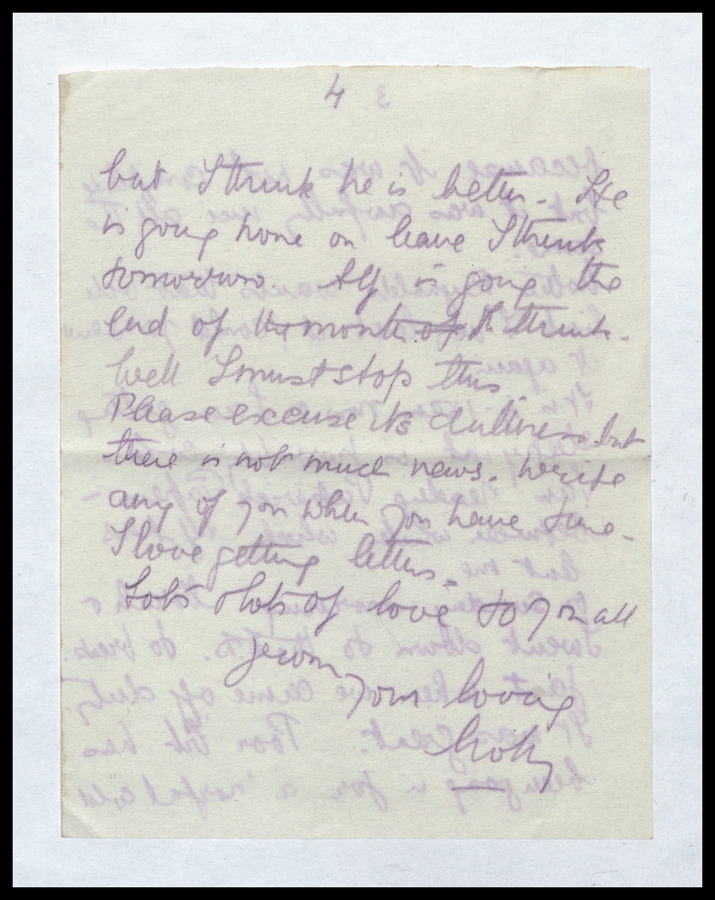 4
but I think he is better. He
is going home on leave I think
tomorrow. Alf is going the
end of the month of it I think.
Well I must stop this.
Please excuse its dullness but
there is not much news. Write
any of you when you have time.
I love getting letters.
Lots & lots of love to you all
from
your loving